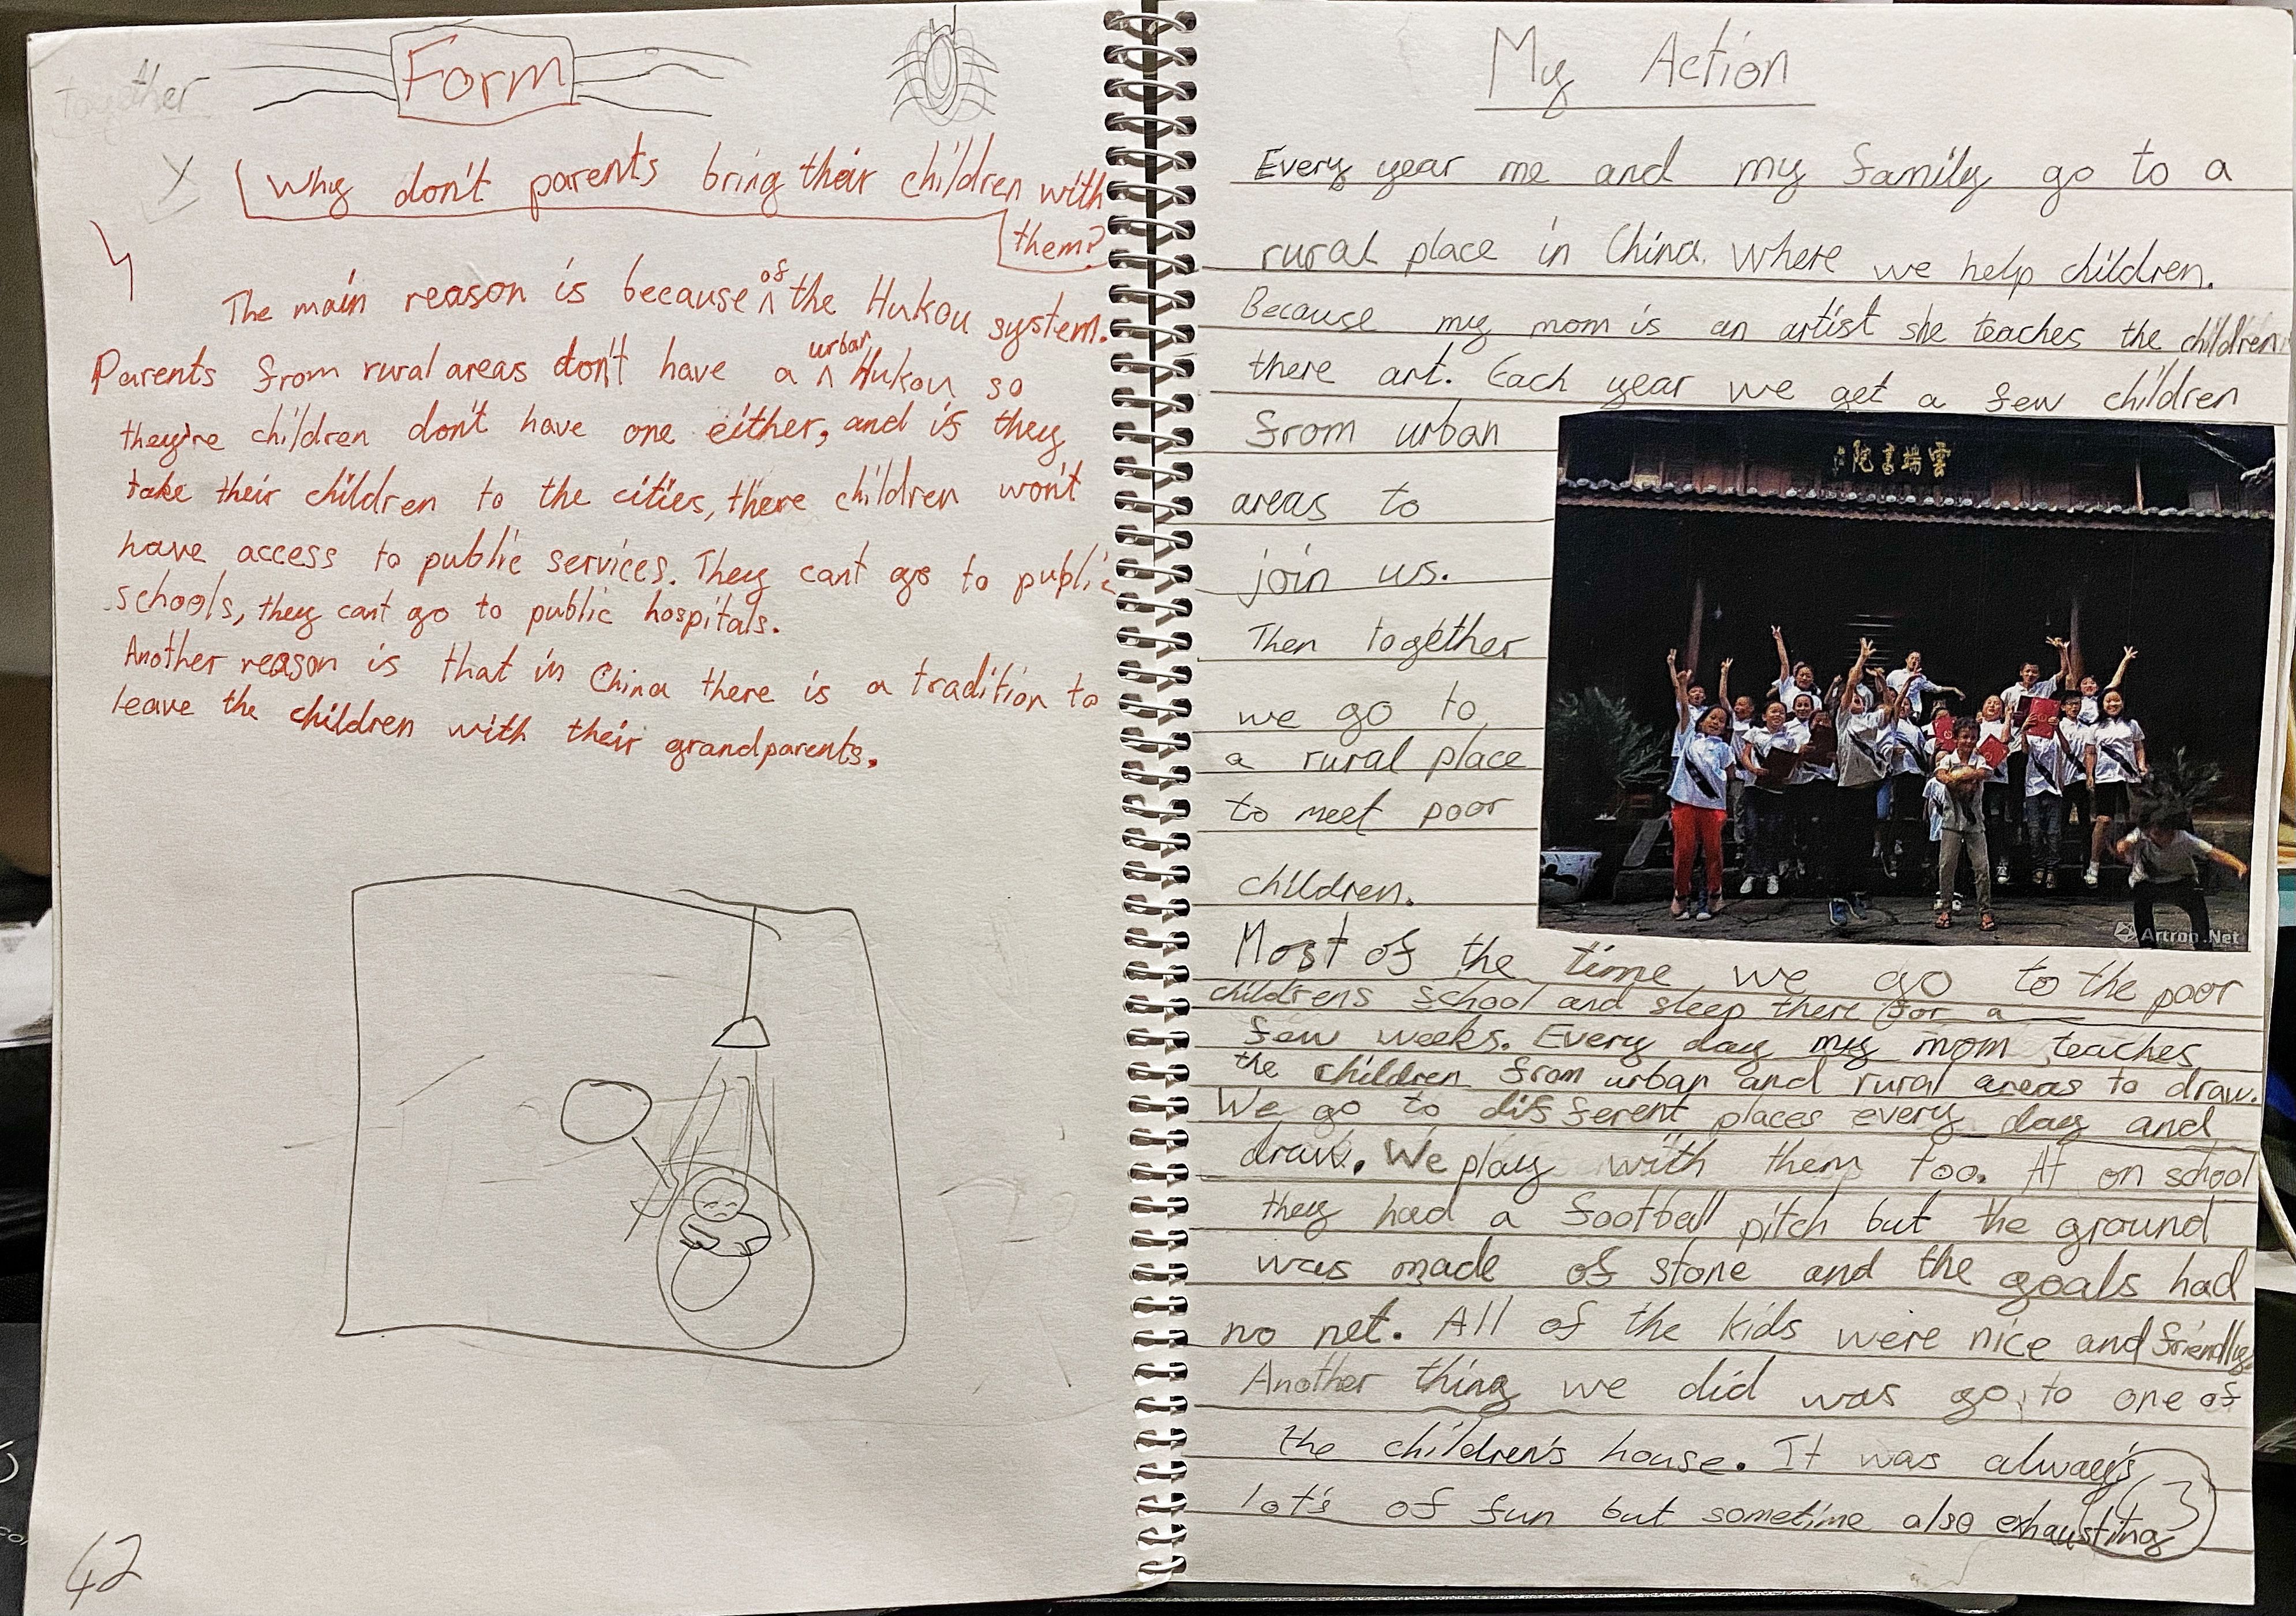 together
Form
Why don't parents bring their children with
them?
The main reason is because of the Hukou system.
Parents from rural areas don't have a urban Hukou so
they're children don't have one either, and if they
take their children to the cities, there children won't
have access to public services. They cant go to public
schools, they cant go to public hospitals.
Another reason is that in China there is a tradition to
leave the children with their grandparents.
42
My Action
Every year me and my family go to a
rural place in China. Where we help children.
Because my mom is an artist she teaches the children
there art. Each year we get a few children
from urban
areas to
join us.
Then together
we go to
a rural place
to meet poor
children.
雲端書院
Artron.Net
Most of the time we go to the poor
childrens school and sleep there for a
few weeks. Every day my mom teaches
the children from urban and rural areas to draw.
We go to different places every day and
draw. We play with them too. At on school
they had a football pitch but the ground
was made of stone and the goals had
no net. All of the kids were nice and friendly.
Another thing we did was go to one of
the children's house. It was always
lot's of fun but sometime also exhausting
43